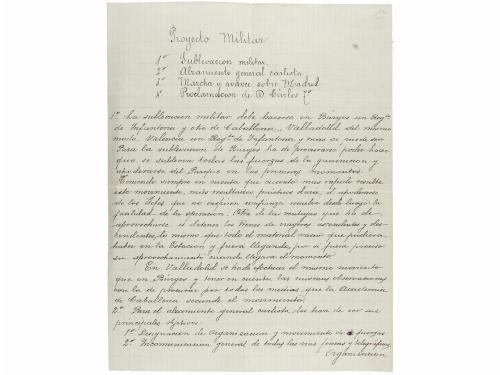 Proyecto Militar
1º Sublevacion militar.
2º Alzamiento general carlista.
3º Marcha y avance sobre Madrid
4º Proclamacion de D. Cárlos 7º
1º La sublevacion militar debe hacerse en Búrgos un Regto
de Infantería y otro de Caballeria, Valladolid del mismo
modo. Valencia un Regto de Infantería y
Para la sublevacion de Búrgos ha de procurarse poder hacer
que se subleven todas las fuerzas de la guarnicion y
apoderarse del Parque en los primeros momentos.
Teniendo siempre en cuenta que cuanto mas rapido resulte
este movimiento, más resultados prácticos dará, el apoderarse
de los Jefes que no inspiren confianza resulta desde luego la
facilidad de la operacion. Otra de las ventajas que ha de
aprovecharse es detener los trenes de viajeros ascendentes y des-
cendentes, lo mismo que todo el material vacio que pudiera
haber en la Estacion y fuera llegando, por si fuera preciso
su aprovechamiento cuando llegara el momento.
En Valladolid se ha de efectuar el mismo movimiento
que en Búrgos y tener en cuenta las mismas observaciones
con la de procurar por todos los medios que la Academia
de Caballeria secunde el movimiento.
2º Para el alzamiento general carlista, dos han de ser sus
principales objetivos
1º Designacion de Organizacion y movimiento de fuerzas
2º Incomunicacion general de todas las vias férreas y telegráficas.
Organizacion